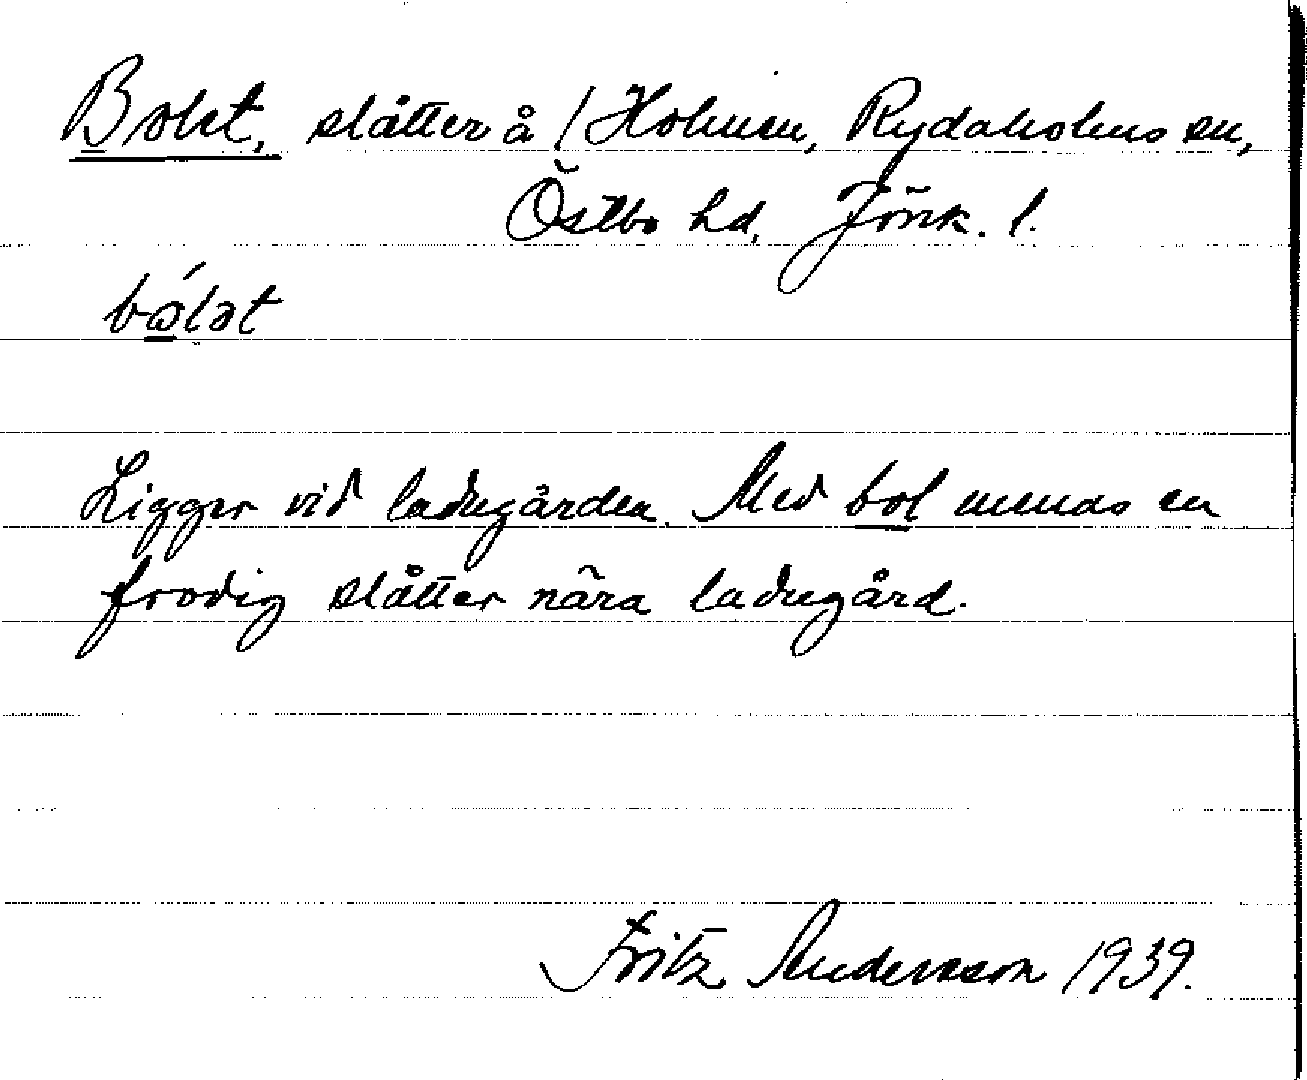 Bolet, slåtter å /Holmen, Rydaholms sn,
Östbo hd, Jönk. l.
bólət
Ligger vid ladugården. Med bol menas en
frodig slåtter nära ladugård.
Fritz Andersson 1939.